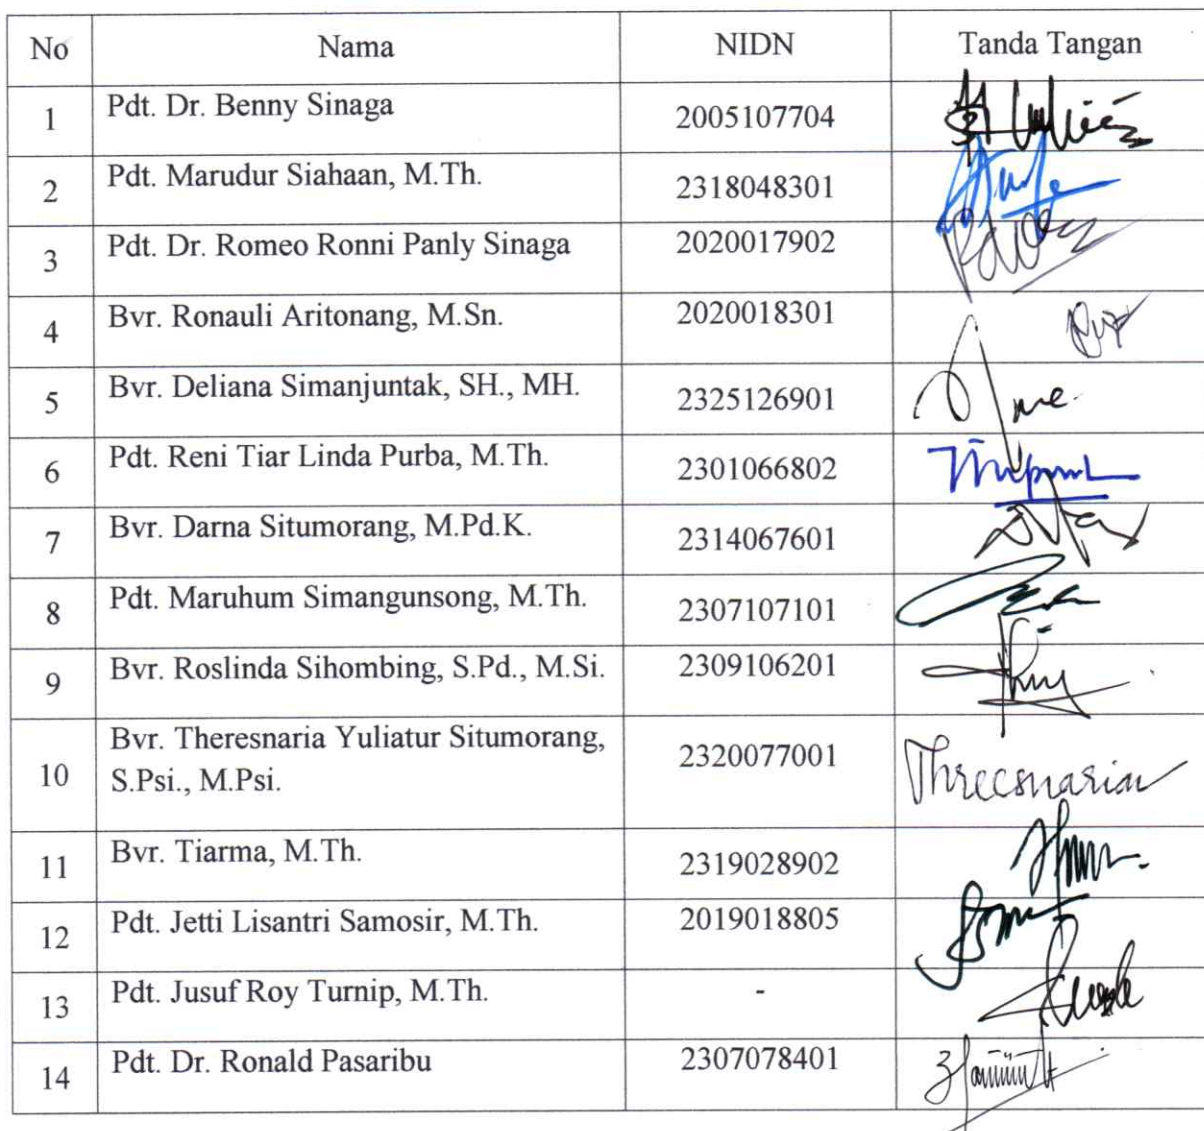 No Nama NIDN Tanda Tangan
1 Pdt. Dr. Benny Sinaga 2005107704
2 Pdt. Marudur Siahaan, M.Th. 2318048301
3 Pdt. Dr. Romeo Ronni Panly Sinaga 2020017902
4 Bvr. Ronauli Aritonang, M.Sn. 2020018301
5 Bvr. Deliana Simanjuntak, SH., MH. 2325126901
6 Pdt. Reni Tiar Linda Purba, M.Th. 2301066802
7 Bvr. Darna Situmorang, M.Pd.K. 2314067601
8 Pdt. Maruhum Simangunsong, M.Th. 2307107101
9 Bvr. Roslinda Sihombing, S.Pd., M.Si. 2309106201
10 Bvr. Theresnaria Yuliatur Situmorang,
S.Psi., M.Psi. 2320077001
11 Bvr. Tiarma, M.Th. 2319028902
12 Pdt. Jetti Lisantri Samosir, M.Th. 2019018805
13 Pdt. Jusuf Roy Turnip, M.Th. -
14 Pdt. Dr. Ronald Pasaribu 2307078401